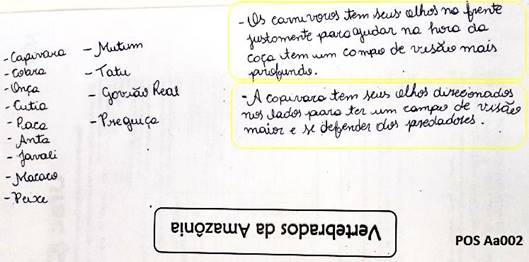 - Capivara
- Cobra
- Onça
- Cutia
- Paca
- Anta
- Javali
- Macaco
- Peixe
- Mutum
- Tatu
- Gavião Real
- Preguiça
- Os carnívoros tem seus olhos na frente
justamente para ajudar na hora da
caça e tem um campo de visão mais
profundo.
- A capivara tem seus olhos direcionados
nos lados para ter um campo de visão
maior e se defender dos predadores.
Vertebrados da Amazônia
POS Aa002